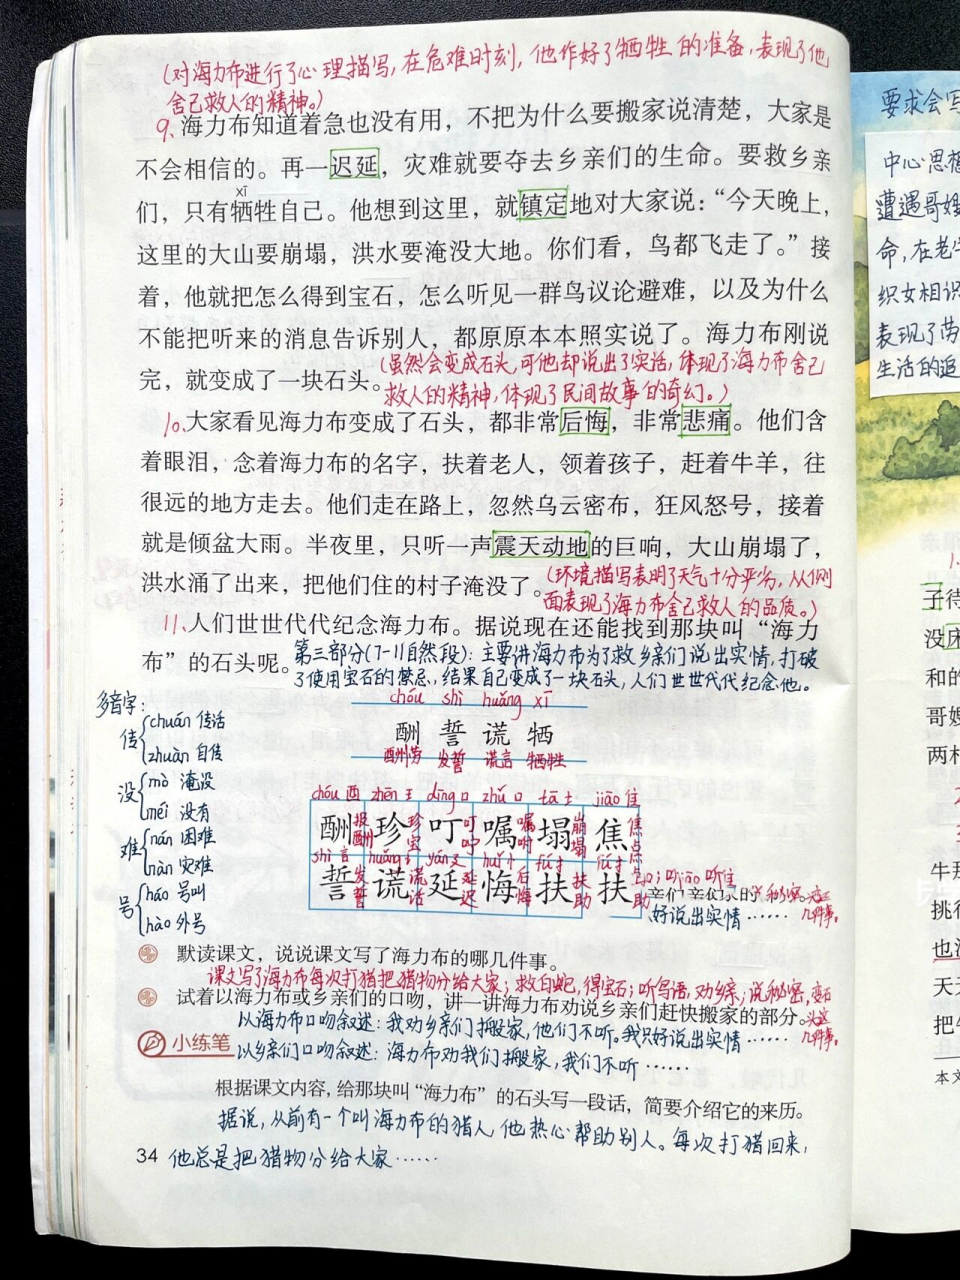 (对海力布进行了心理描写,在危难时刻,他作好了牺牲的准备,表现了他
舍己救人的精神。)
9、海力布知道着急也没有用，不把为什么要搬家说清楚，大家是
不会相信的。再一迟延，灾难就要夺去乡亲们的生命。要救乡亲
xī
们，只有牺牲自己。他想到这里，就镇定地对大家说：“今天晚上，
这里的大山要崩塌，洪水要淹没大地。你们看，鸟都飞走了。”接
着，他就把怎么得到宝石，怎么听见一群鸟议论避难，以及为什么
不能把听来的消息告诉别人，都原原本本照实说了。海力布刚说
完，就变成了一块石头。
(虽然会变成石头,可他却说出了实话,体现了海力布舍己
救人的精神,体现了民间故事的奇幻。)
10、大家看见海力布变成了石头，都非常后悔，非常悲痛。他们含
着眼泪，念着海力布的名字，扶着老人，领着孩子，赶着牛羊，往
很远的地方走去。他们走在路上，忽然乌云密布，狂风怒号，接着
就是倾盆大雨。半夜里，只听一声震天动地的巨响，大山崩塌了，
洪水涌了出来，把他们住的村子淹没了。
(环境描写表明了天气十分恶劣,从侧
面表现了海力布舍己救人的品质。)
11、人们世世代代纪念海力布。据说现在还能找到那块叫“海力
布”的石头呢。
第三部分(7-11自然段)：主要讲海力布为了救乡亲们说出实情,打破
了使用宝石的禁忌,结果自己变成了一块石头,人们世世代代纪念他。
多音字：
传 chuán 传话
zhuàn 自传
没 mò 淹没
méi 没有
难 nán 困难
nàn 灾难
号 háo 号叫
hào 外号
chóu shì huǎng xī
酬 誓 谎 牺
酬劳 发誓 谎言 牺牲
chóu 酉 zhēn 王 dīng 口 zhǔ 口 tā 土 jiāo 隹
酬 报酬 珍 珍宝 叮 叮咛 嘱 嘱咐 塌 崩塌 焦 焦点
shì 言 huǎng yán 廴 huǐ 忄 fú 扌 fú 扌
誓 发誓 谎 谎话 延 延迟 悔 后悔 扶 扶助 扶
好说出实情……
默读课文，说说课文写了海力布的哪几件事。
课文写了海力布每次打猎把猎物分给大家；救白蛇,得宝石；听鸟语,劝乡亲；说秘密,变石
头这
几件事。
试着以海力布或乡亲们的口吻，讲一讲海力布劝说乡亲们赶快搬家的部分。
以海力布口吻叙述：我劝乡亲们搬家,他们不听。我只好说出实情……
小练笔
以乡亲们口吻叙述：海力布劝我们搬家,我们不听……
根据课文内容,给那块叫“海力布”的石头写一段话，简要介绍它的来历。
据说,从前有一个叫海力布的猎人,他热心帮助别人。每次打猎回来,
34 他总是把猎物分给大家……
要求会写
中心思想
遭遇哥嫂
命,在老牛
织女相识
表现了
生活的追
子待
没床
和的
哥嫂
两村
牛那
挑
也
天天
把牛
本文